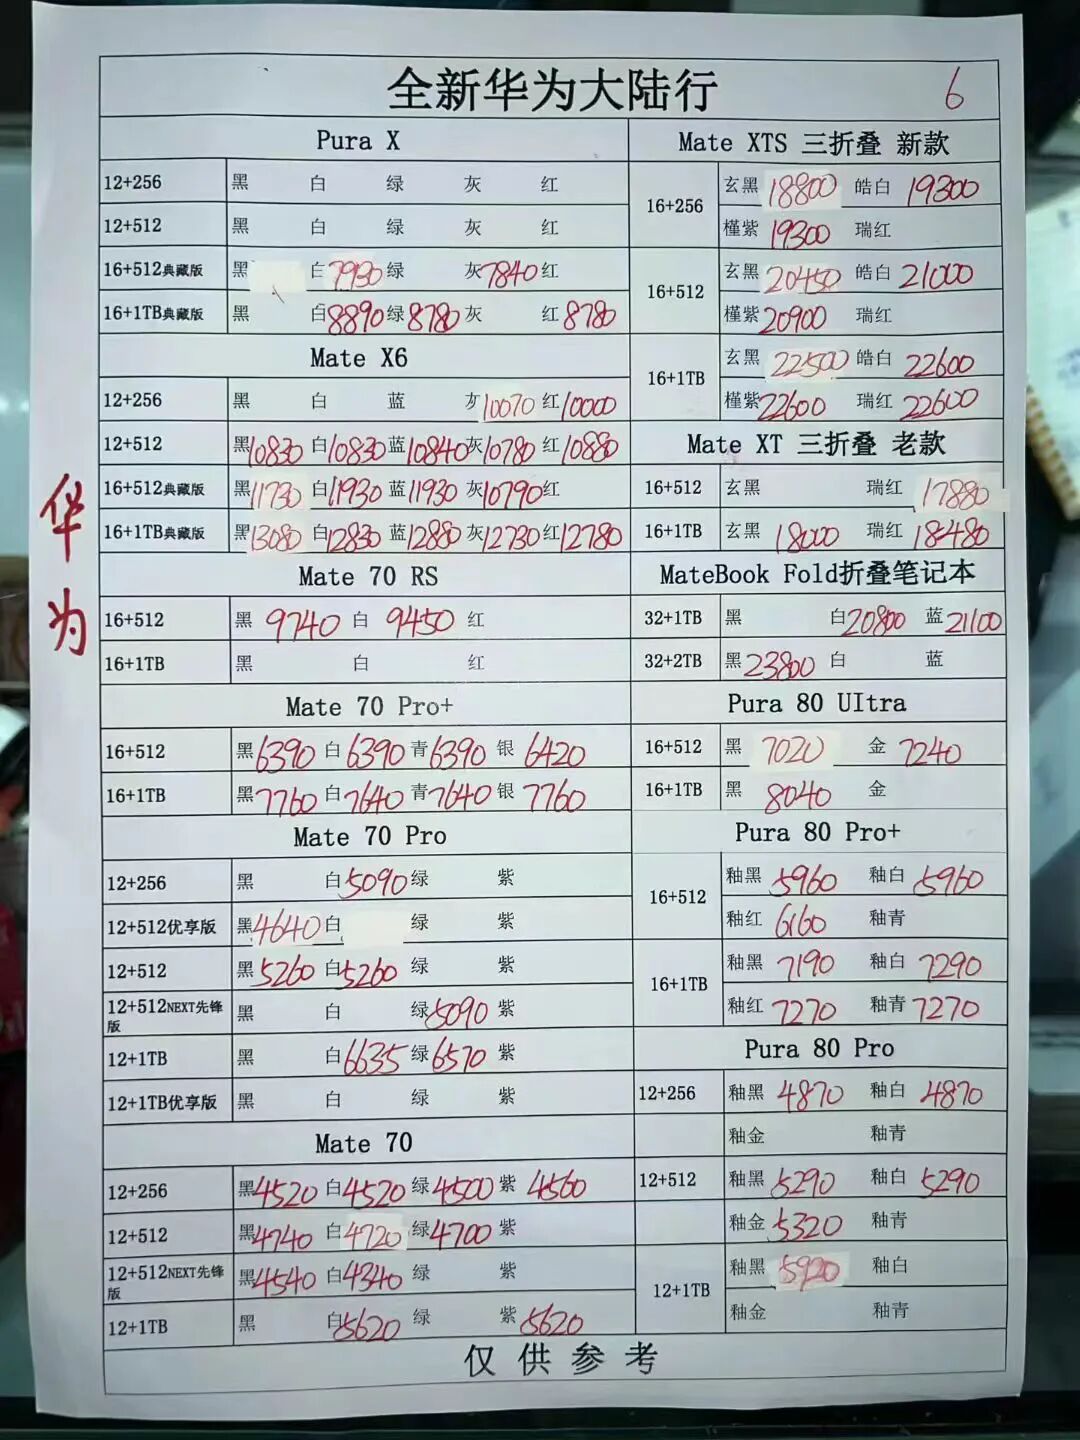 全新华为大陆行 6
华为
Pura X
12+256 黑 白 绿 灰 红
12+512 黑 白 绿 灰 红
16+512典藏版 黑 白7930 绿 灰7840 红
16+1TB典藏版 黑 白8890 绿8780 灰 红8780
Mate X6
12+256 黑 白 蓝 灰10070 红10000
12+512 黑10830 白10830 蓝10840 灰10780 红10880
16+512典藏版 黑11730 白11930 蓝11930 灰10790 红
16+1TB典藏版 黑13080 白12830 蓝12880 灰12730 红12780
Mate 70 RS
16+512 黑 9740 白 9450 红
16+1TB 黑 白 红
Mate 70 Pro+
16+512 黑6390 白6390 青6390 银 6420
16+1TB 黑7760 白7640 青7640 银 7760
Mate 70 Pro
12+256 黑 白5090 绿 紫
12+512优享版 黑4640 白 绿 紫
12+512 黑5260 白5260 绿 紫
12+512NEXT先锋版 黑 白 绿5090 紫
12+1TB 黑 白6635 绿6570 紫
12+1TB优享版 黑 白 绿 紫
Mate 70
12+256 黑4520 白4520 绿4500 紫 4560
12+512 黑4740 白4720 绿4700 紫
12+512NEXT先锋版 黑4540 白4340 绿 紫
12+1TB 黑 白5620 绿 紫5620
Mate XTS 三折叠 新款
16+256 玄黑 18800 皓白 19300
槿紫 19300 瑞红
16+512 玄黑 20450 皓白 21000
槿紫20900 瑞红
16+1TB 玄黑 22500 皓白 22600
槿紫22600 瑞红 22600
Mate XT 三折叠 老款
16+512 玄黑 瑞红 17880
16+1TB 玄黑 18000 瑞红 18480
MateBook Fold折叠笔记本
32+1TB 黑 白20800 蓝21100
32+2TB 黑23800 白 蓝
Pura 80 UItra
16+512 黑 7020 金 7240
16+1TB 黑 8040 金
Pura 80 Pro+
16+512 釉黑 5960 釉白 5960
釉红 6160 釉青
16+1TB 釉黑 7190 釉白 7290
釉红 7270 釉青 7270
Pura 80 Pro
12+256 釉黑 4870 釉白 4870
釉金 釉青
12+512 釉黑 5290 釉白 5290
釉金 5320 釉青
12+1TB 釉黑 5920 釉白
釉金 釉青
仅供参考